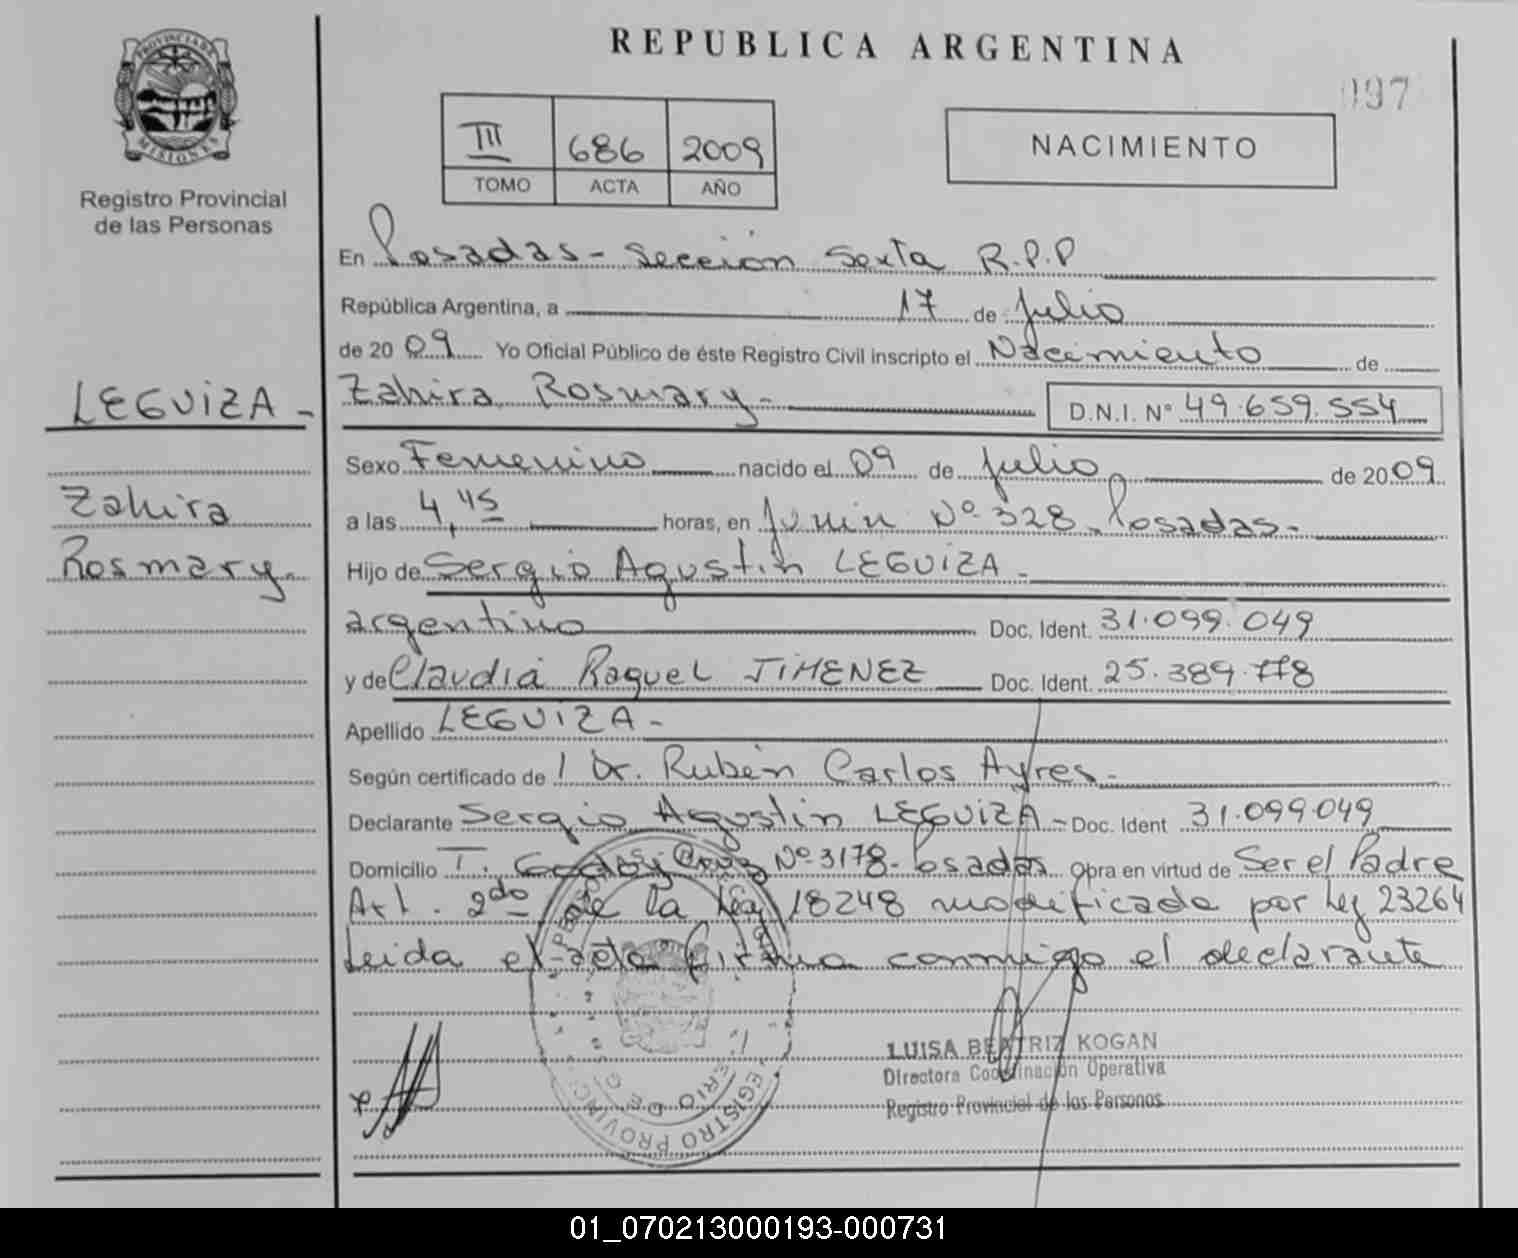 REPUBLICA ARGENTINA
097
PROVINCIA DE
MISIONES
Registro Provincial
de las Personas
III 686 2009
TOMO ACTA AÑO
NACIMIENTO
En Posadas - Sección Sexta R.P.P
República Argentina, a 17 de Julio
de 2009 Yo Oficial Público de éste Registro Civil inscripto el Nacimiento de
LEGUIZA -
Zahira Rosmary - D.N.I. N° 49.659.554
Sexo Femenino nacido el 09 de Julio de 2009
Zahira
a las 4,45 horas, en Junin Nº 328 - Posadas -
Rosmary.
Hijo de Sergio Agustin LEGUIZA -
argentino Doc. Ident. 31.099.049
y de Claudia Raquel JIMENEZ Doc. Ident. 25.389.778
Apellido LEGUIZA -
Según certificado de / Dr. Rubén Carlos Ayres -
Declarante Sergio Agustin LEGUIZA - Doc. Ident 31.099.049
Domicilio T. Godoy Cruz Nº 3178 - Posadas Obra en virtud de Ser el Padre
Art. 2do de la Ley 18248 modificada por Ley 23264
Leida el acta firma conmigo el declarante
LUISA BEATRIZ KOGAN
Directora Coordinación Operativa
Registro Provincial de las Personas
REGISTRO PROVINC
01_070213000193-000731